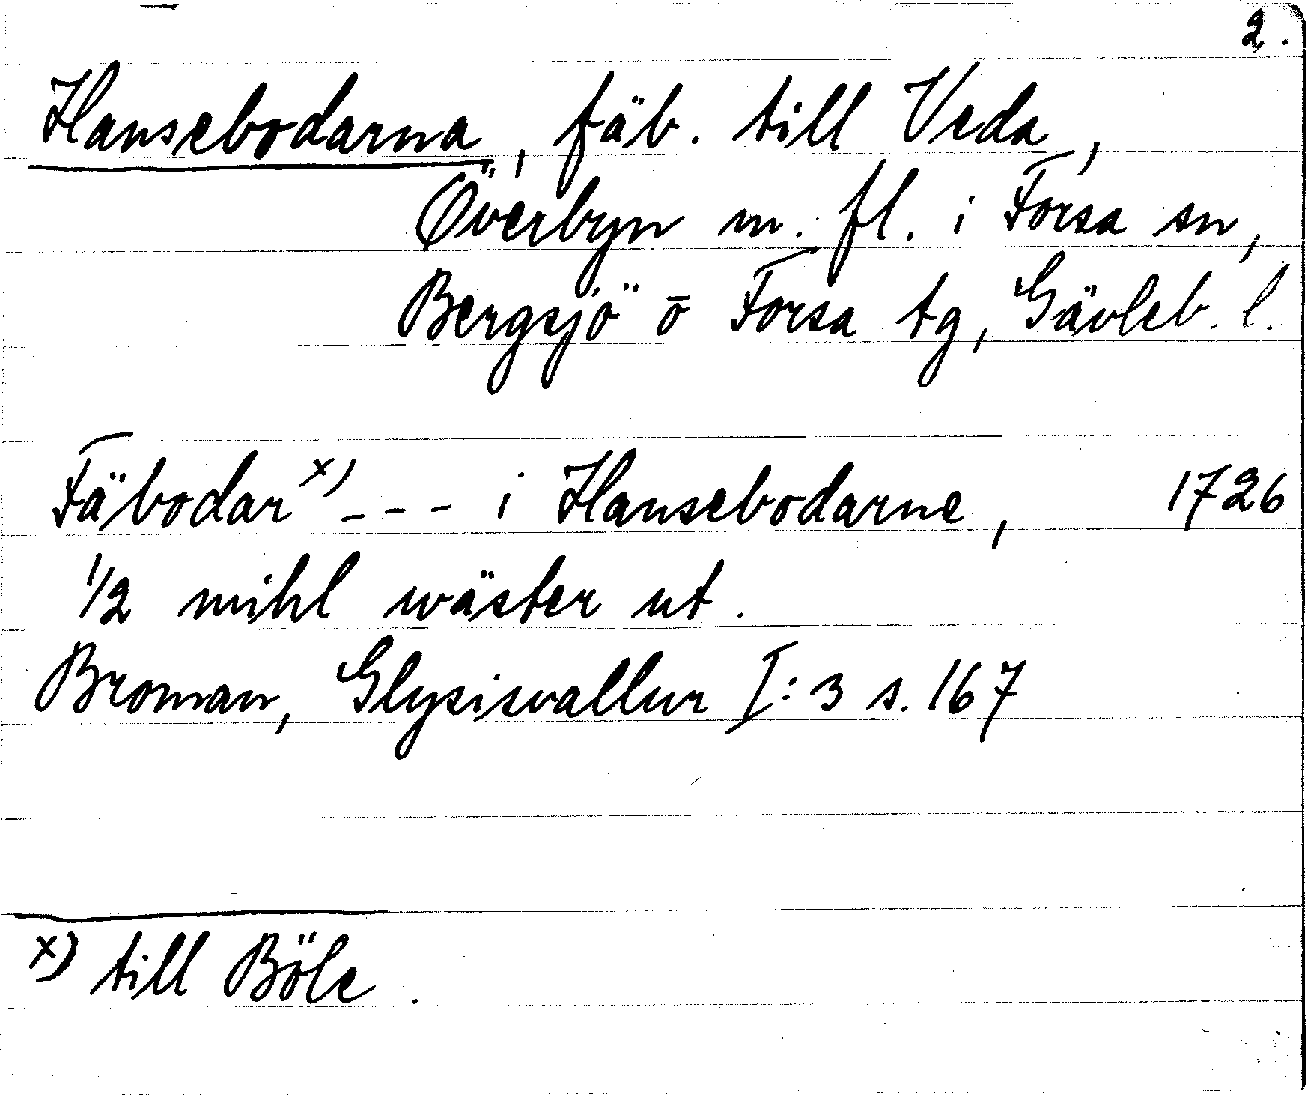 2.
Hansebodarna, fäb. till Veda,
Överbyn m. fl. i Forsa sn,
Bergsjö o Forsa tg, Gävleb. l.
Fäbodar x) --- i Hansebodarne, 1726
1/2 mihl wäster ut.
Broman, Glysisvallur I:3 s. 167
x) till Böle.